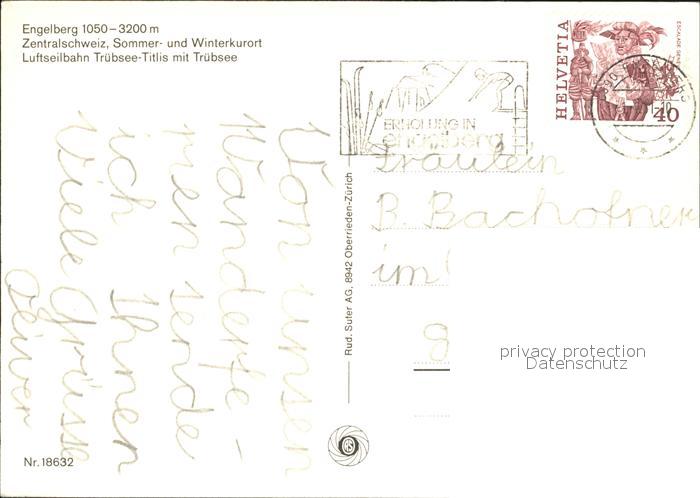 Engelberg 1050–3200 m
Zentralschweiz, Sommer- und Winterkurort
Luftseilbahn Trübsee-Titlis mit Trübsee
Von unsen
Wanderfe-
rien sende
ich Ihnen
viele Grüsse
Oliver
Nr. 18632
Rud. Suter AG, 8942 Oberrieden-Zürich
ERHOLUNG IN
engelberg
HELVETIA
40
Fräulein
B. Bachofner
im
8
privacy protection
Datenschutz